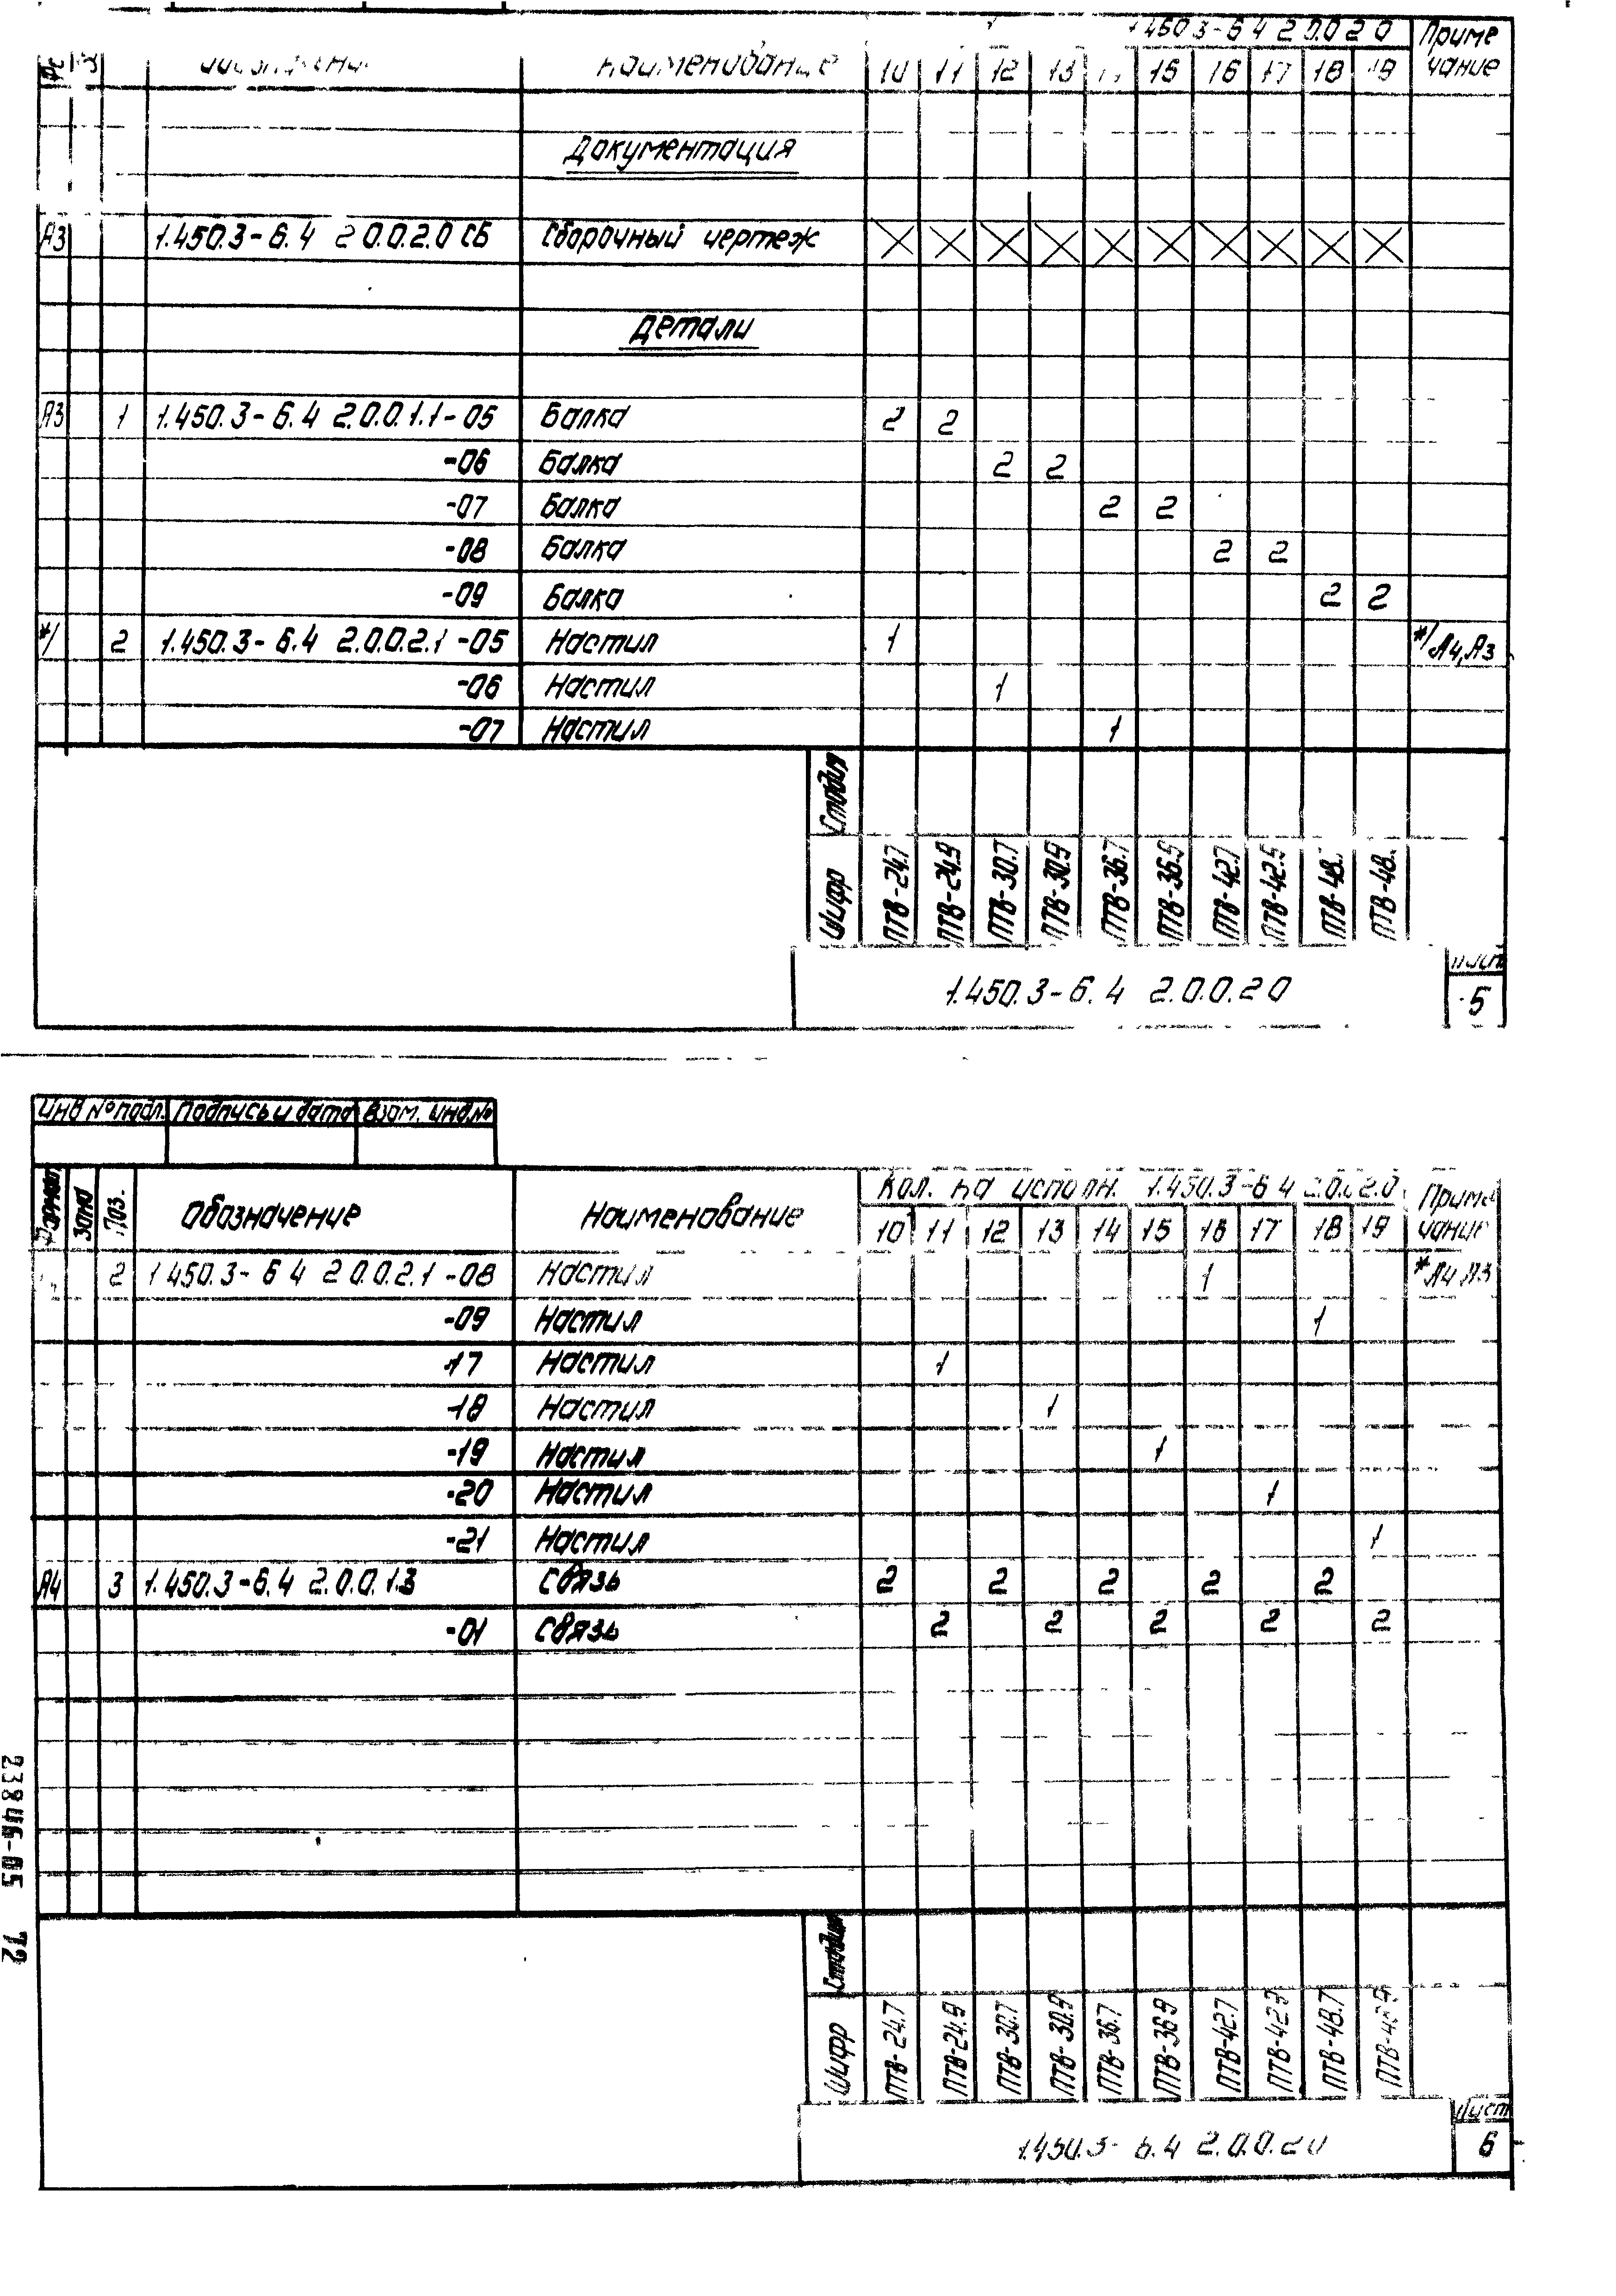 1.450.3-6.4 2.0.0.2.0 Приме
Наименование 10 11 12 13 15 16 17 18 19 чание
Документация
А3 1.450.3-6.4 2.0.0.2.0 СБ Сборочный чертеж
Детали
А3 1 1.450.3-6.4 2.0.0.1.1-05 Балка 2 2
-06 Балка 2 2
-07 Балка 2 2
-08 Балка 2 2
-09 Балка 2 2
*/ 2 1.450.3-6.4 2.0.0.2.1-05 Настил 1 */А4,А3
-06 Настил 1
-07 Настил 1
Стадия
Шифр ПТВ-24.7 ПТВ-24.9 ПТВ-30.7 ПТВ-30.9 ПТВ-36.7 ПТВ-36.9 ПТВ-42.7 ПТВ-42.9 ПТВ-48. ПТВ-48.
1.450.3-6.4 2.0.0.2.0
Лист
5
Инв № подл. Подпись и дата Взам. инв.№
Формат Зона Поз. Обозначение Наименование Кол. на исполн. 1.450.3-6.4 2.0.0.2.0 Приме
10 11 12 13 14 15 16 17 18 19 чание
2 1.450.3-6.4 2.0.0.2.1-08 Настил 1 *А4 А3
-09 Настил 1
-17 Настил 1
-18 Настил 1
-19 Настил 1
-20 Настил 1
-21 Настил 1
А4 3 1.450.3-6.4 2.0.0.1.3 Связь 2 2 2 2 2
-01 Связь 2 2 2 2 2
Стадия
Шифр ПТВ-24.7 ПТВ-24.9 ПТВ-30.7 ПТВ-30.9 ПТВ-36.7 ПТВ-36.9 ПТВ-42.7 ПТВ-42.9 ПТВ-48.7 ПТВ-48.9
1.450.3-6.4 2.0.0.2.0
Лист
6
23846-05 72